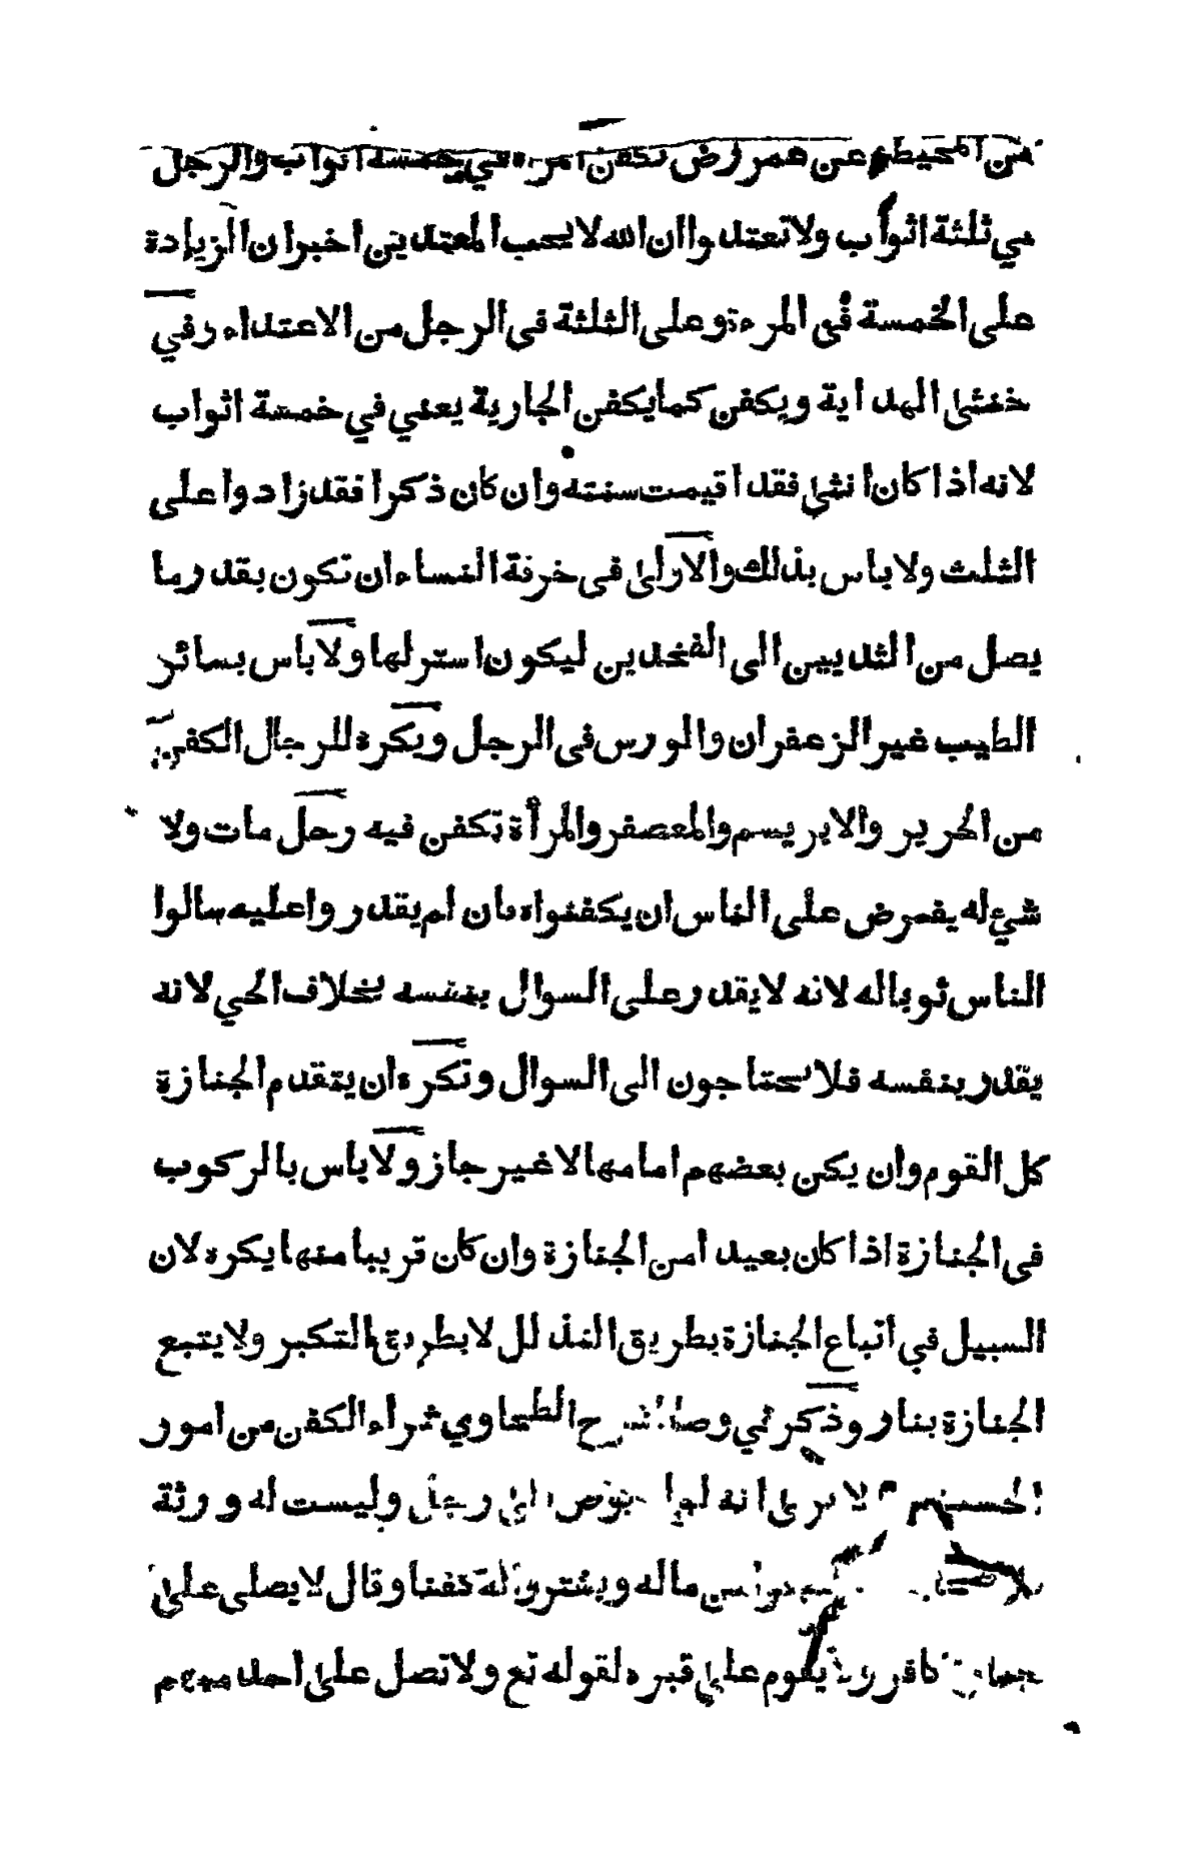 من المحيط عن عمر رض تكفن امرءة في خمسة اثواب والرجل
في ثلثة اثواب ولا تعتدوا ان الله لا يحب المعتدين اخبر ان الزيادة
على الخمسة في المرءة وعلى الثلثة في الرجل من الاعتداء وفي
خنثى الهداية ويكفن كما يكفن الجارية يعني في خمسة اثواب
لانه اذا كان انثى فقد اقيمت سنته وان كان ذكرا فقد زادوا على
الثلث ولا باس بذلك والاولى في خرقة النساء ان تكون بقدر ما
يصل من الثديين الى الفخدين ليكون استر لها ولا باس بسائر
الطيب غير الزعفران والورس في الرجل ويكره للرجال الكفن
من الحرير والابريسم والمعصفر والمرأة تكفن فيه رجل مات ولا
شيء له يفرض على الناس ان يكفنواه فان لم يقدروا عليه سالوا
الناس ثوبا له لانه لا يقدر على السوال بنفسه بخلاف الحي لانه
يقدر بنفسه فلا يحتاجون الى السوال وتكره ان يتقدم الجنازة
كل القوم وان يكن بعضهم امامها لا غير جاز ولا باس بالركوب
في الجنازة اذا كان بعيدا من الجنازة وان كان قريبا منها يكره لان
السبيل في اتباع الجنازة بطريق التذلل لا بطريق التكبر ولا يتبع
الجنازة بنار وذكر في وصايا شرح الطحاوي شراء الكفن من امور
لا يرى انه رجل وليست له ورثة
من ماله ويشترى له كفنا وقال لا يصلى على
كافر ولا يقوم على قبره لقوله تع ولا تصل على احد منهم